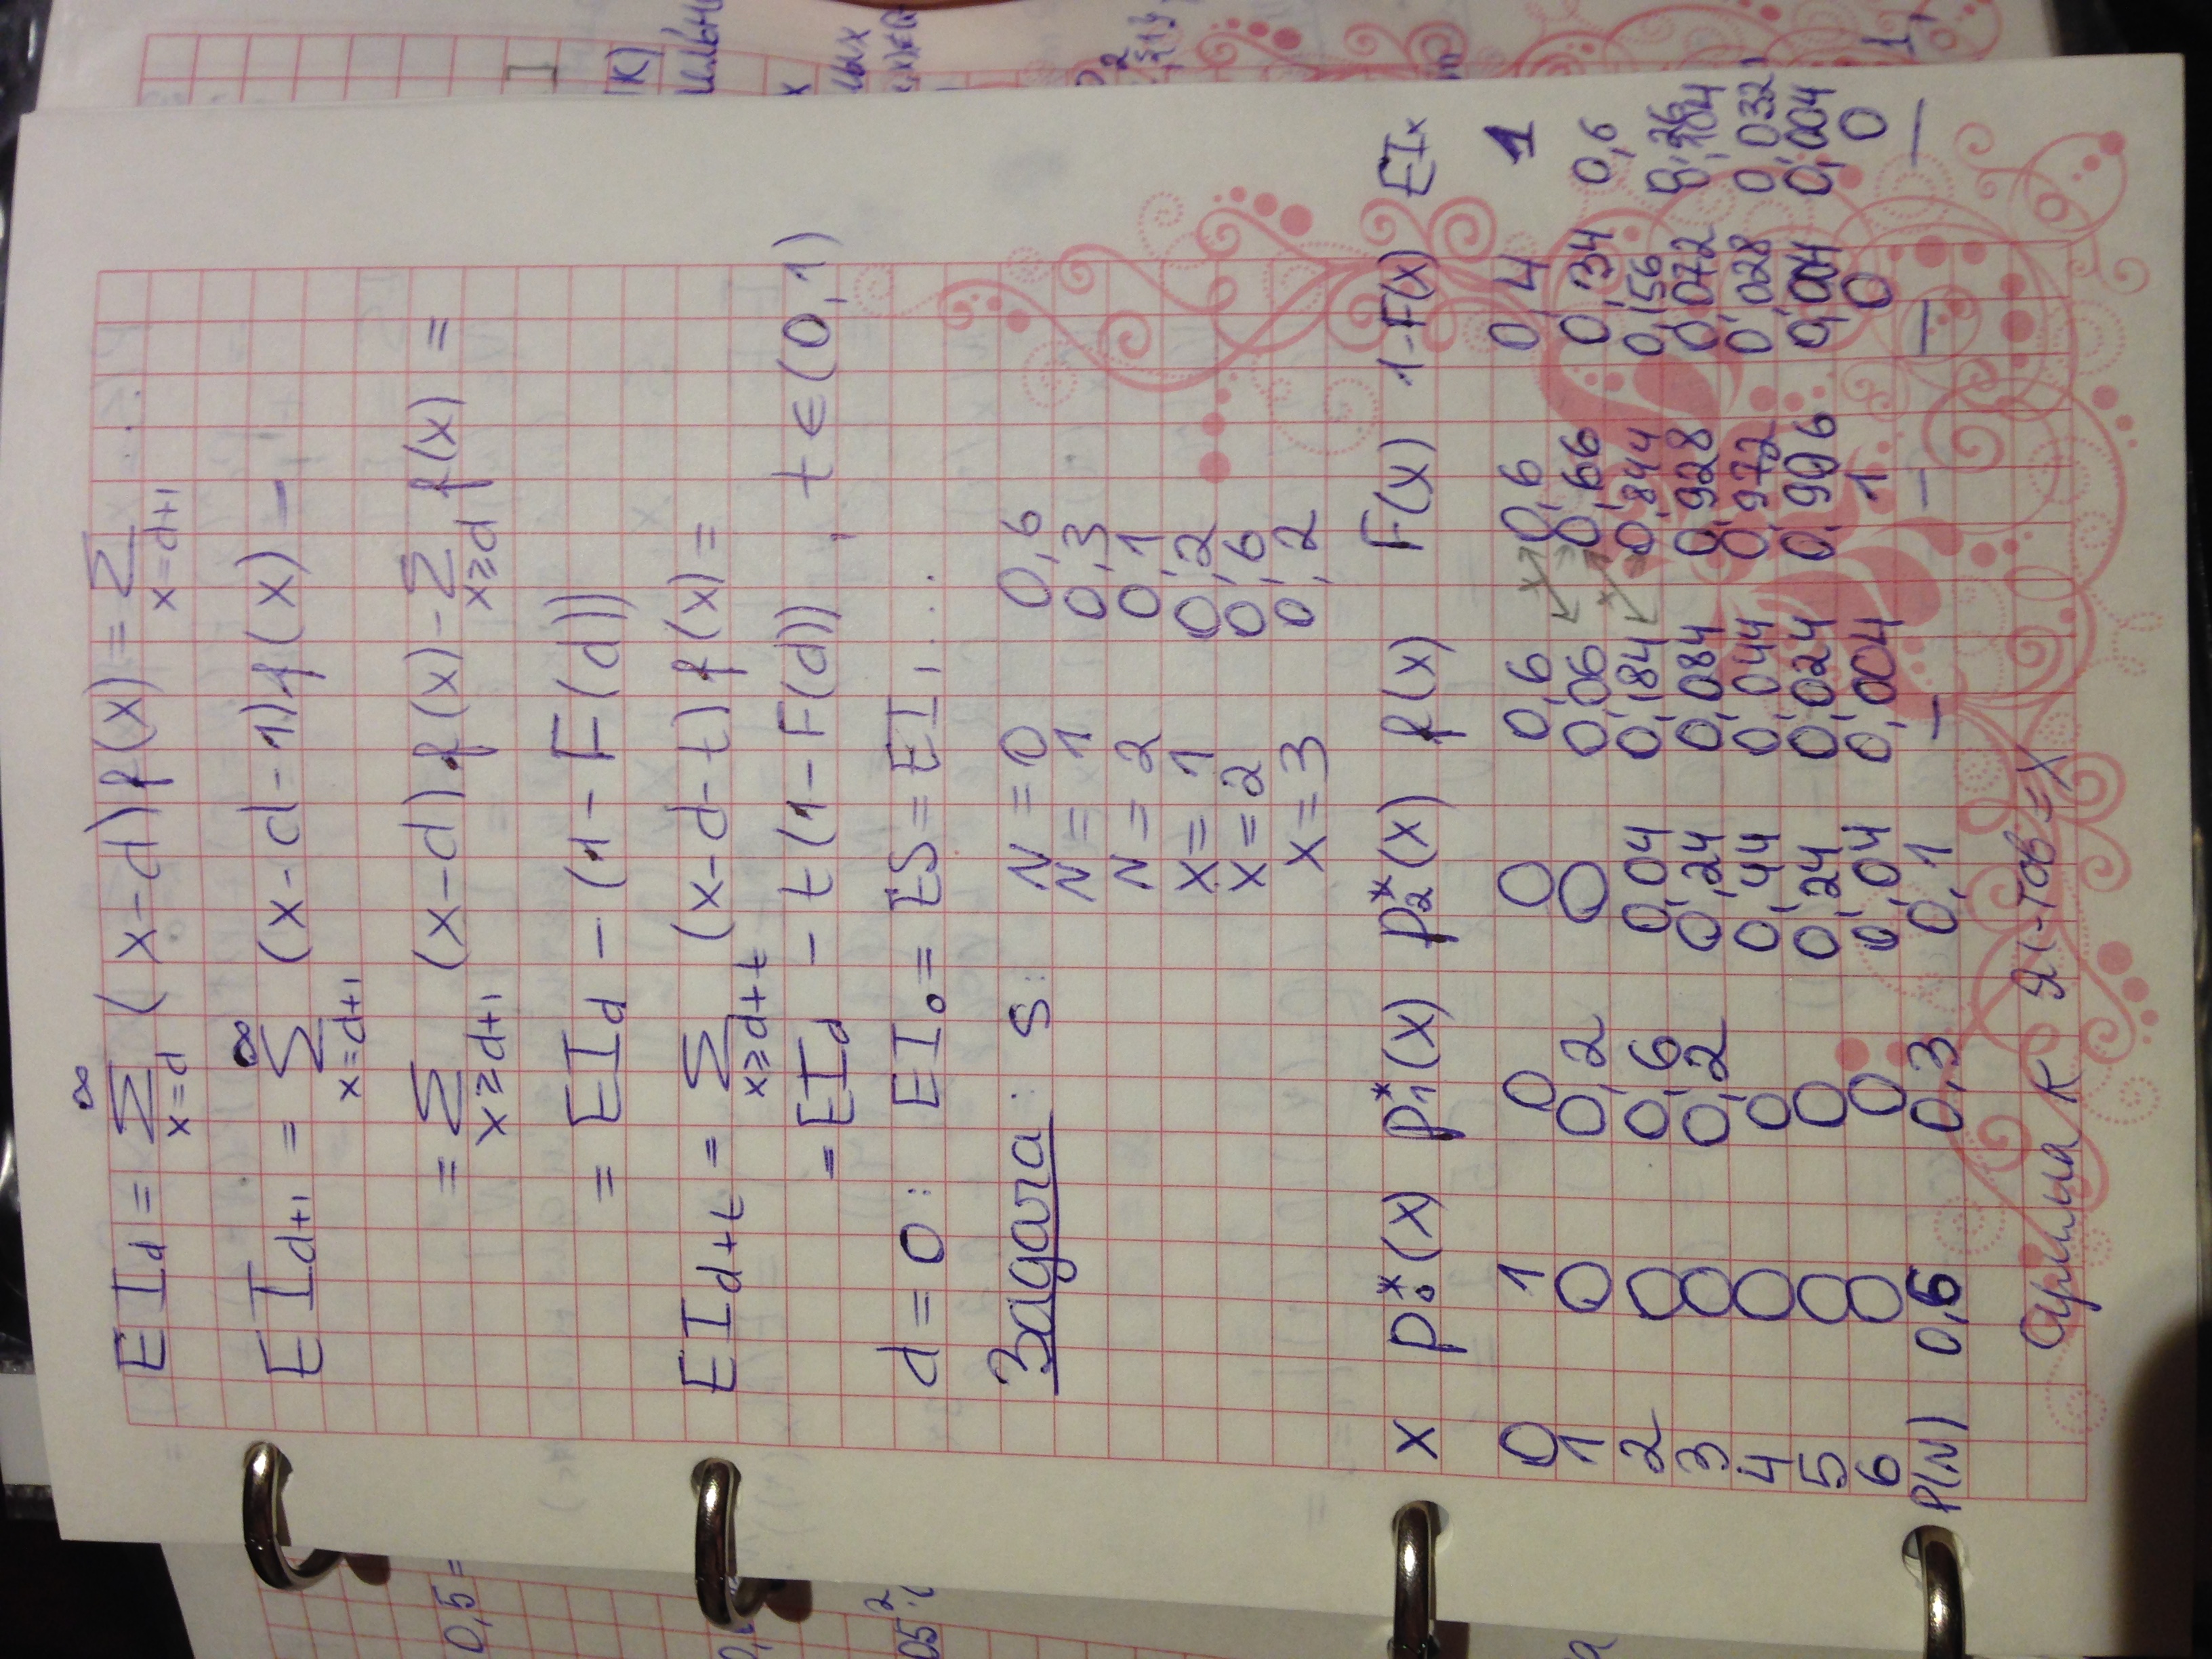 EI_d = ∑_{x=d}^∞ (x-d) f(x) = ∑_{x=d+1} ...
EI_{d+1} = ∑_{x=d+1}^∞ (x-d-1) f(x) -
= ∑_{x≥d+1} (x-d) f(x) - ∑_{x≥d} f(x) =
= EI_d - (1-F(d))
EI_{d+t} = ∑_{x≥d+t} (x-d-t) f(x) =
= EI_d - t(1-F(d)), t ∈ (0,1)
d=0: EI_0 = ES = EI, ...
Задача: S: N=0 0,6
N=1 0,3
N=2 0,1
X=1 0,2
X=2 0,6
X=3 0,2
x P_0^*(x) P_1^*(x) P_2^*(x) f(x) F(x) 1-F(x) EI_x
0 1 0 0 0,6 0,6 0,4 1
1 0 0,2 0 0,06 0,66 0,34 0,6
2 0 0,6 0,04 0,184 0,844 0,156 0,26
3 0 0,2 0,24 0,084 0,928 0,072 0,104
4 0 0 0,44 0,044 0,972 0,028 0,032
5 0 0 0,24 0,024 0,996 0,004 0,004
6 0 0 0,04 0,004 1 0 0
P(N) 0,6 0,3 0,1 — — — —